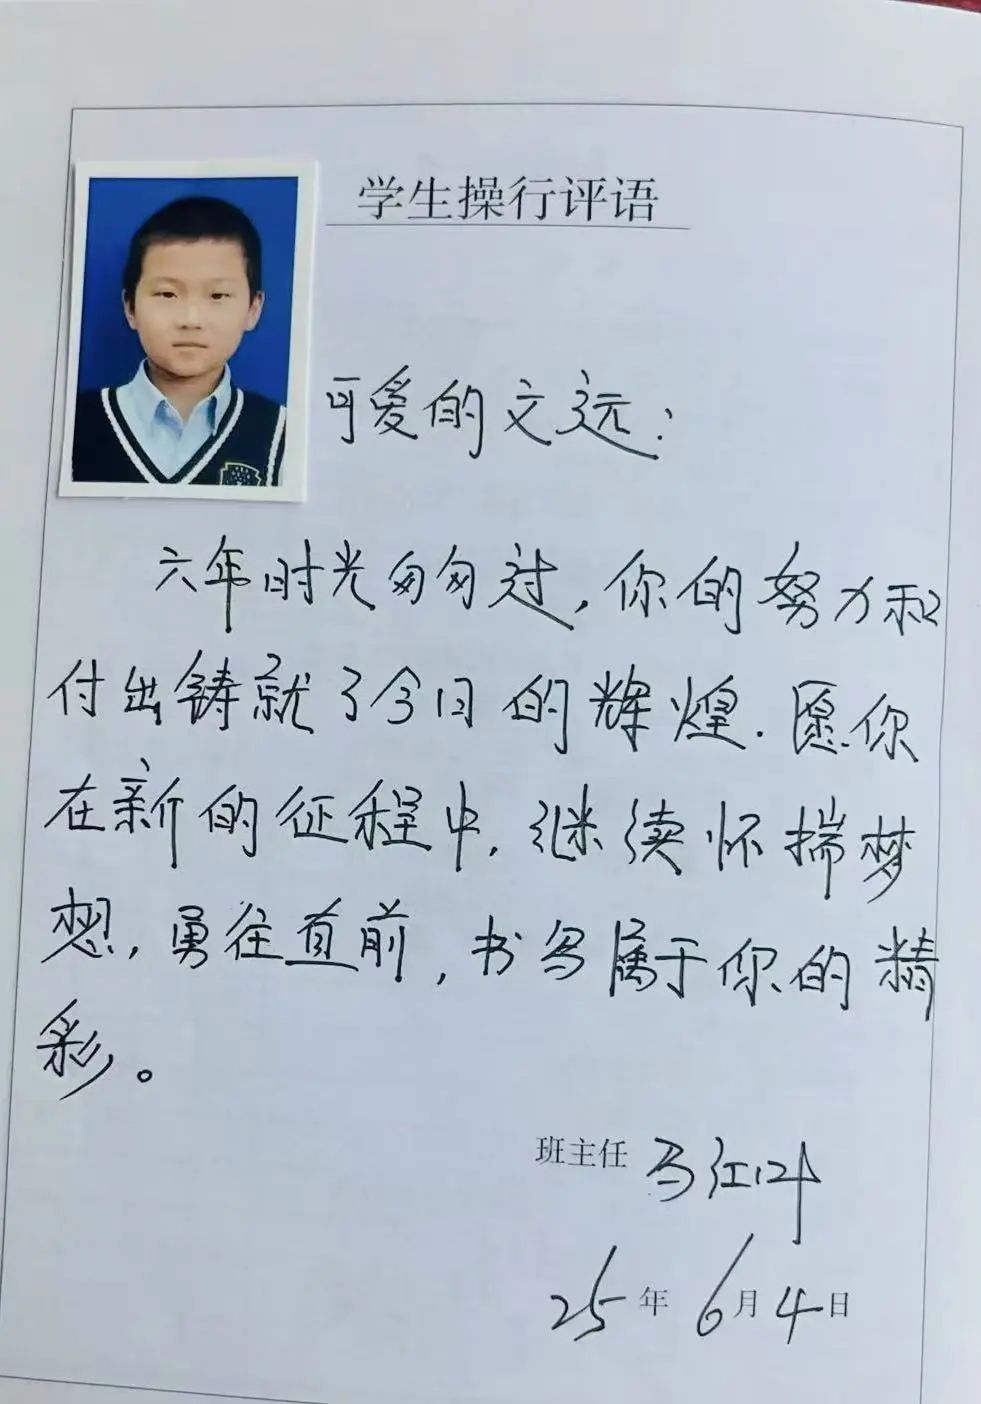 学生操行评语
可爱的文远：
六年时光匆匆过，你的努力和
付出铸就了今日的辉煌．愿你
在新的征程中，继续怀揣梦
想，勇往直前，书写属于你的精
彩。
班主任 马江叶
25年6月4日